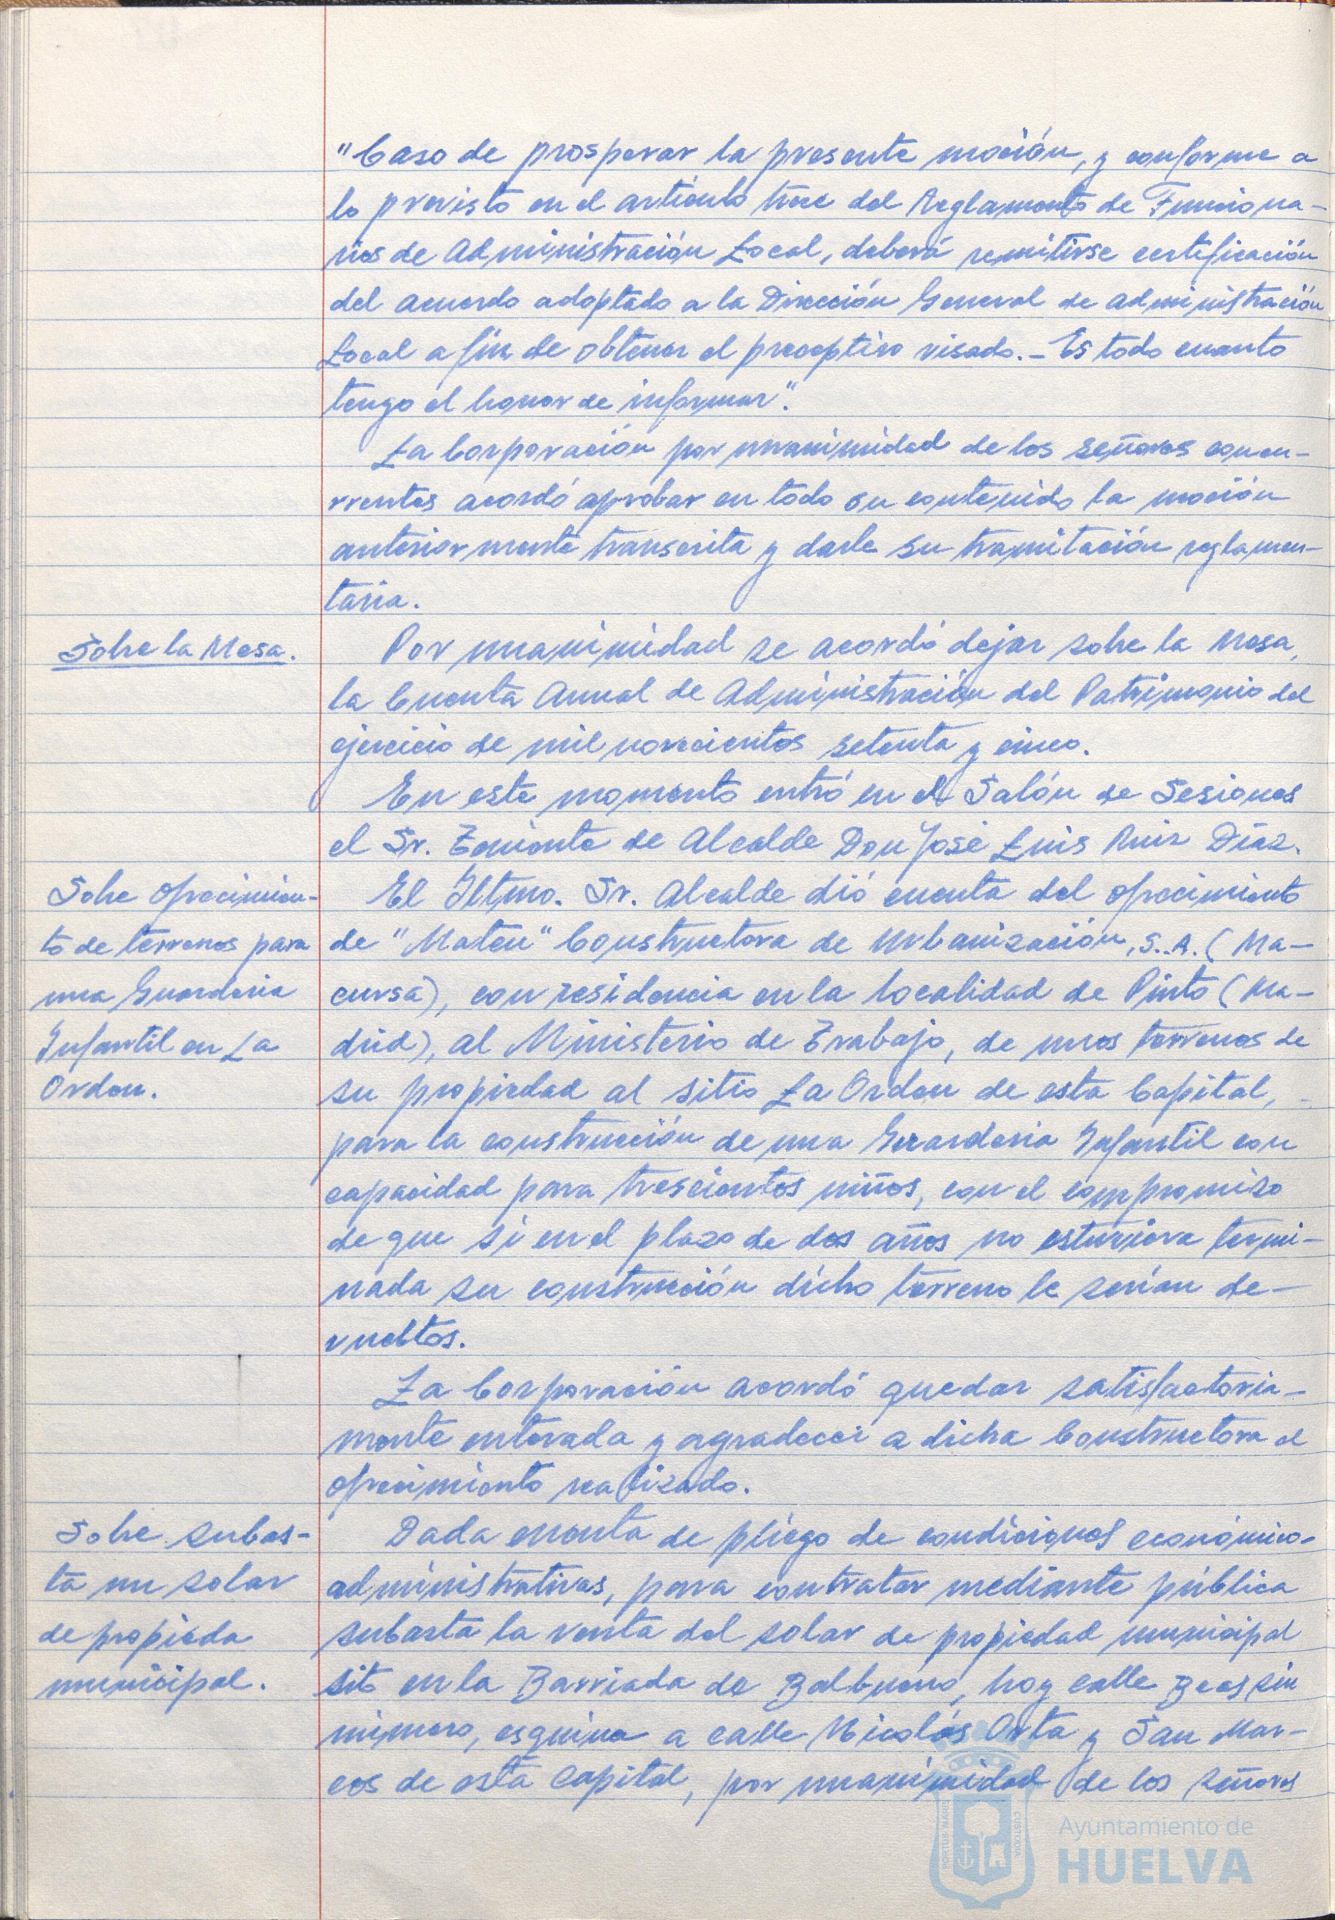 "Caso de prosperar la presente moción, y conforme a
lo previsto en el artículo trece del Reglamento de Funciona-
rios de Administración Local, deberá remitirse certificación
del acuerdo adoptado a la Dirección General de Administración
Local a fin de obtener el preceptivo visado.- Es todo cuanto
tengo el honor de informar".
La Corporación por unanimidad de los señores concu-
rrentes acordó aprobar en todo su contenido la moción
anteriormente transcrita y darle su tramitación reglamen-
taria.
Sobre la Mesa.
Por unanimidad se acordó dejar sobre la Mesa,
la Cuenta Anual de Administración del Patrimonio del
ejercicio de mil novecientos setenta y cinco.
En este momento entró en el Salón de Sesiones
el Sr. Teniente de Alcalde Don José Luis Ruiz Díaz.
Sobre ofrecimien-
to de terrenos para
una Guardería
Infantil en La
Orden.
El Iltmo. Sr. Alcalde dió cuenta del ofrecimiento
de "Mateu" Constructora de Urbanización, S.A. (Ma-
cursa), con residencia en la localidad de Pinto (Ma-
drid), al Ministerio de Trabajo, de unos terrenos de
su propiedad al sitio La Orden de esta Capital,
para la construcción de una Guardería Infantil con
capacidad para trescientos niños, con el compromiso
de que si en el plazo de dos años no estuviera termi-
nada su construcción dicho terreno le serían de-
vueltos.
La Corporación acordó quedar satisfactoria-
mente enterada y agradecer a dicha Constructora el
ofrecimiento realizado.
Sobre subas-
ta un solar
de propieda
municipal.
Dada cuenta de pliego de condiciones económico-
administrativas, para contratar mediante pública
subasta la venta del solar de propiedad municipal
sito en la Barriada de Balbueno, hoy calle Beas sin
número, esquina a calle Nicolás Orta y San Mar-
cos de esta Capital, por unanimidad de los señores
Ayuntamiento de
HUELVA